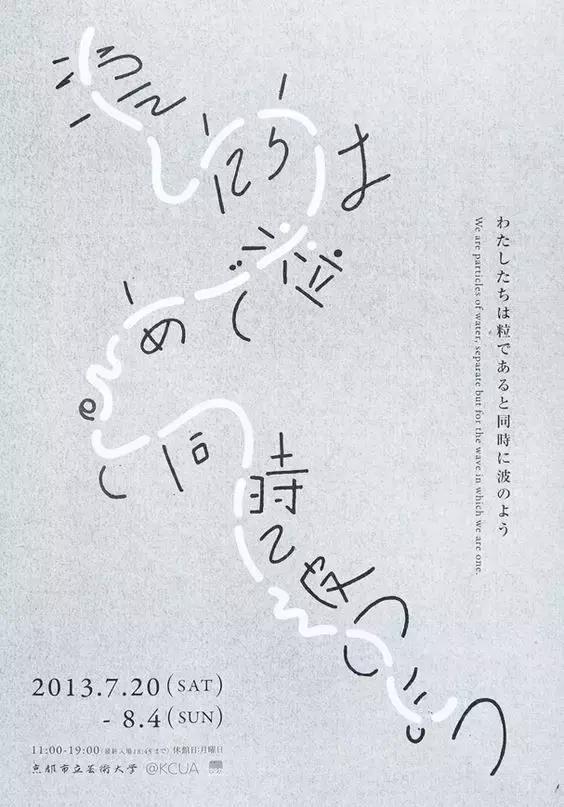 わたしたちは粒であると同時に波のよう
We are particles of water, separate but for the wave in which we are one.
2013.7.20 (SAT)
- 8.4 (SUN)
11:00-19:00 (最終入場18:45まで) 休館日:月曜日
京都市立芸術大学 @KCUA